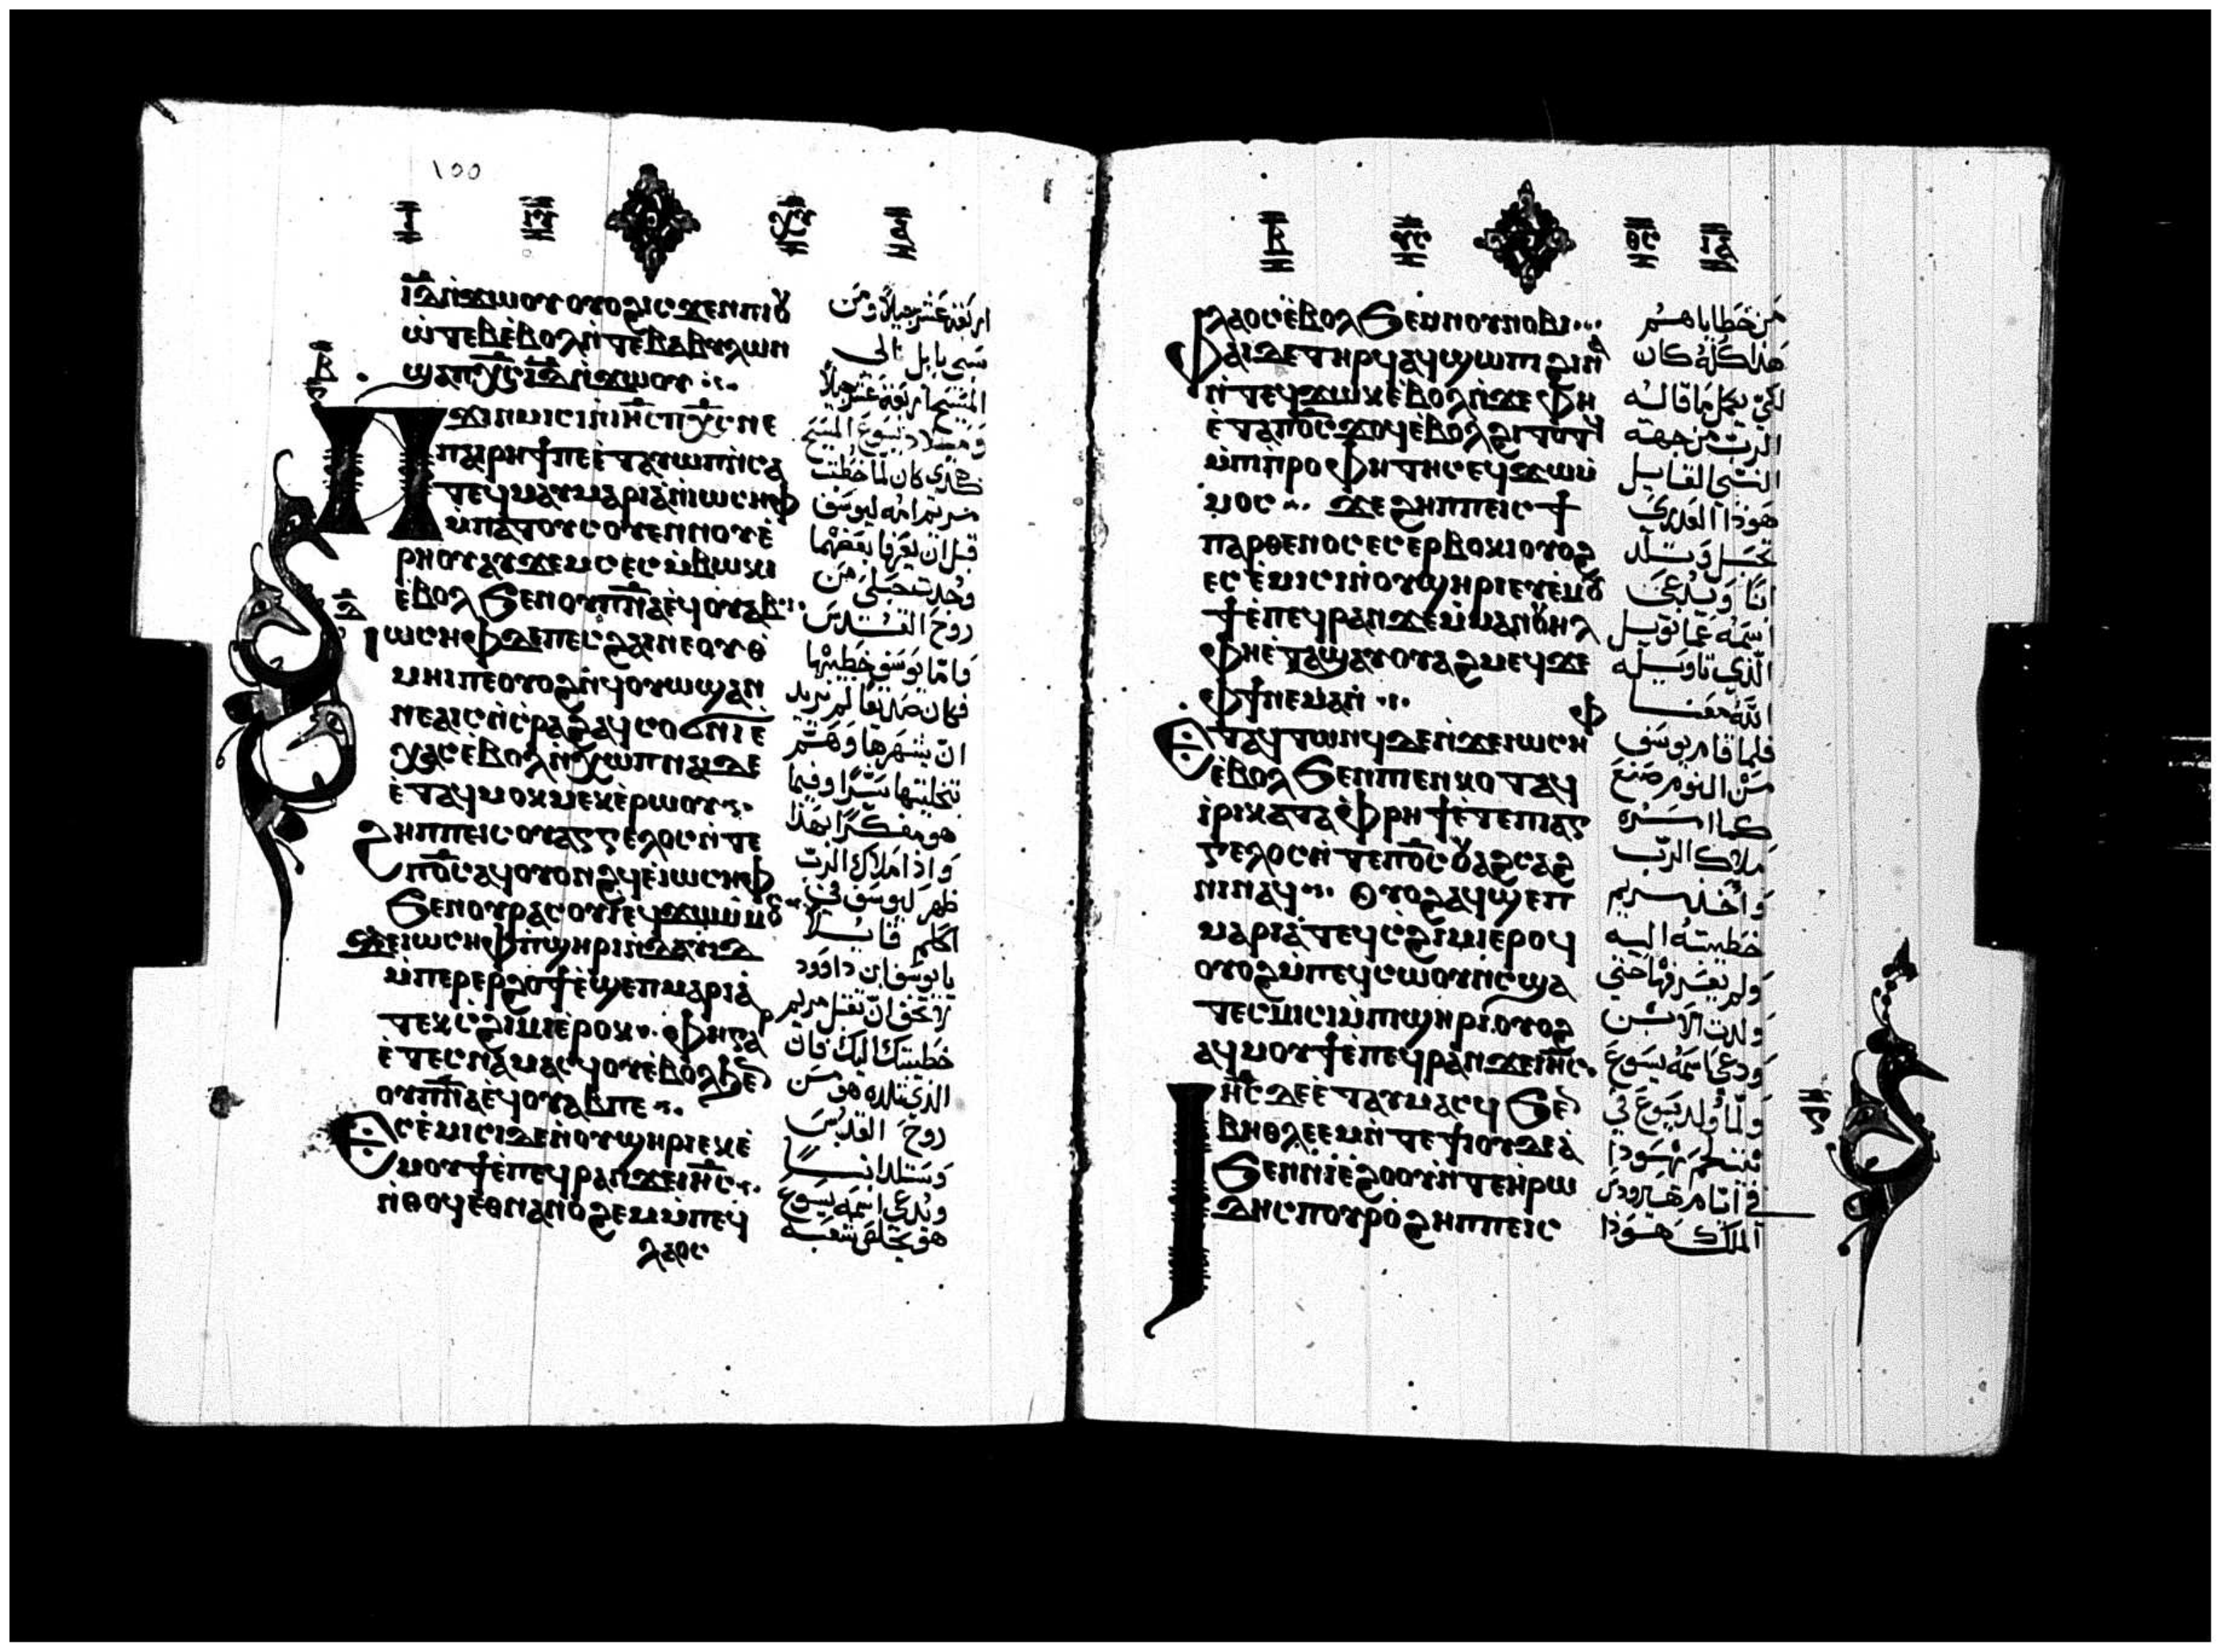 ⲓ̅ⲇ̅ⲛ̀ϫⲱⲟⲩ ⲟⲩⲟϩ ⲓⲥϫⲉⲛ ⲡⲓⲟⲩ
ⲱ̀ⲧⲉⲃ ⲉ̀ⲃⲟⲗ ⲛ̀ⲧⲉ ⲃⲁⲃⲩⲗⲱⲛ
ϣⲁ ⲡⲭ̅ⲥ̅ ⲓ̅ⲇ̅ ⲛ̀ϫⲱⲟⲩ
Ⲡϫⲓⲛⲙⲓⲥⲓ ⲛ̀ⲓⲏ̅ⲥ̅ ⲡⲭ̅ⲥ̅ ⲛⲉ
ⲡⲁⲓⲣⲏϯ ⲡⲉ ⲉ̀ⲧⲁⲩⲱⲡ ⲛ̀ⲥⲁ
ⲧⲉϥⲙⲁⲩ ⲙⲁⲣⲓⲁ̀ ⲛ̀ⲓⲱⲥⲏⲫ
ⲙ̀ⲡⲁⲧⲟⲩⲥⲟⲩⲉⲛ ⲛⲟⲩⲉ̀
ⲣⲏⲟⲩ ⲁⲩϫⲉⲙⲥ ⲉⲥⲙ̀ⲃⲟⲕⲓ
ⲉ̀ⲃⲟⲗ ϧⲉⲛ ⲟⲩⲡ̅ⲛ̅ⲁ̅ ⲉϥⲟⲩⲁⲃ
Ⲓⲱⲥⲏⲫ ⲇⲉ ⲡⲉⲥϩⲁⲓ ⲛⲉ ⲟⲩⲑ
ⲙⲏⲓ ⲡⲉ ⲟⲩⲟϩ ⲛ̀ϥⲟⲩⲱϣ ⲁⲛ
ⲛⲉⲁⲓⲥ ⲛ̀ⲥ̀ⲣⲁϩ ⲁϥⲥⲟϭⲛⲓ ⲉ
ⲭⲁⲥ ⲉ̀ⲃⲟⲗ ⲛ̀ⲭⲱⲡ ⲛⲁⲓ ⲇⲉ
ⲉ̀ⲧⲁϥⲙⲟⲕⲙⲉⲕ ⲉ̀ⲣⲱⲟⲩ
ϩⲏⲡⲡⲉ ⲓⲥ ⲟⲩⲁⲅⲅⲉⲗⲟⲥ ⲛ̀ⲧⲉ
ⲡⲟ̅ⲥ̅ ⲁϥⲟⲩⲟⲛϩϥ ⲉ̀ⲓⲱⲥⲏⲫ
ϧⲉⲛ ⲟⲩⲣⲁⲥⲟⲩⲓ ⲉϥϫⲱ ⲙ̀ⲙⲟⲥ
ϫⲉ ⲓⲱⲥⲏⲫ ⲡ̀ϣⲏⲣⲓ ⲛ̀ⲇⲁⲩⲓⲇ
ⲙ̀ⲡⲉⲣⲉⲣϩⲟϯ ⲉ̀ϣⲉⲡ ⲙⲁⲣⲓⲁ̀
ⲧⲉⲕⲥ̀ϩⲓⲙⲓ ⲉ̀ⲣⲟⲕ ⲫⲏ ⲅⲁⲣ
ⲉ̀ⲧⲉⲥⲛⲁⲙⲁⲥϥ ⲟⲩⲉ̀ⲃⲟⲗ ϧⲉⲛ
ⲟⲩⲡ̅ⲛ̅ⲁ̅ ⲉϥⲟⲩⲁⲃ ⲡⲉ
Ⲉⲥⲉ̀ⲙⲓⲥⲓ ⲇⲉ ⲛ̀ⲟⲩϣⲏⲣⲓ ⲉⲕⲉ̀
ⲙⲟⲩϯ ⲉ̀ⲡⲉϥⲣⲁⲛ ϫⲉ ⲓⲏ̅ⲥ̅
ⲛ̀ⲑⲟϥ ⲉⲑⲛⲁⲛⲟϩⲉⲙ ⲙ̀ⲡⲉϥ
ⲗⲁⲟⲥ
اربعة عشر جيلا ومن
سبي بابل الى
المسيح اربعة عشر جيلا
وميلاد يسوع المسيح
هكذى كان لما خطبت
مريم امه ليوسف
قبل ان يعرفا بعضهما
وجدت حبلى من
روح القدس
فاما يوسف خطيبها
فكان صديقا لم يريد
ان يشهرها وهم
بتخليتها سرا وفيما
هو مفكرا بهذا
واذا ملاك الرب
ظهر ليوسف في
الحلم قايلا
يا يوسف ابن داوود
لا تخف ان تقبل مريم
خطيبتك اليك فان
الذي تلده هو من
روح القدس
وستلد ابنا
ويدعى اسمه يسوع
هو يخلص شعبه
ⲗⲁⲟⲥ ⲉ̀ⲃⲟⲗ ϧⲉⲛ ⲛⲟⲩⲛⲟⲃⲓ
Ⲫⲁⲓ ⲇⲉ ⲧⲏⲣϥ ⲁϥϣⲱⲡⲓ ϩⲓⲛⲁ
ⲛ̀ⲧⲉϥϫⲱⲕ ⲉ̀ⲃⲟⲗ ⲛ̀ϫⲉ ⲫⲏ
ⲉ̀ⲧⲁ ⲡⲟ̅ⲥ̅ ϫⲟϥ ⲉ̀ⲃⲟⲗ ϩⲓⲧⲟⲧϥ
ⲙ̀ⲡⲓⲡ̀ⲣⲟⲫⲏⲧⲏⲥ ⲉϥϫⲱ ⲙ̀
ⲙⲟⲥ ϫⲉ ϩⲏⲡⲡⲉ ⲓⲥ ϯ
ⲡⲁⲣⲑⲉⲛⲟⲥ ⲉⲥⲉⲣⲃⲟⲕⲓ ⲟⲩⲟϩ
ⲉⲥⲉ̀ⲙⲓⲥⲓ ⲛ̀ⲟⲩϣⲏⲣⲓ ⲉⲩⲉ̀ⲙⲟⲩ
ϯ ⲉ̀ⲡⲉϥⲣⲁⲛ ϫⲉ ⲉⲙⲙⲁⲛⲟⲩⲏⲗ
ⲫⲏ ⲉ̀ⲧⲁϣⲁⲩⲟⲩⲁϩⲙⲉϥ ϫⲉ
ⲫϯ ⲛⲉⲙⲁⲛ
Ⲉⲧⲁϥⲧⲱⲛϥ ⲇⲉ ⲛ̀ϫⲉ ⲓⲱⲥⲏⲫ
ⲉ̀ⲃⲟⲗ ϧⲉⲛ ⲡⲉⲛⲕⲟⲧ ⲁϥ
ⲓ̀ⲣⲓ ⲕⲁⲧⲁ ⲫⲣⲏϯ ⲉ̀ⲧⲉ ⲡⲓⲁⲅ
ⲅⲉⲗⲟⲥ ⲛ̀ⲧⲉ ⲡⲟ̅ⲥ̅ ⲟⲩⲁϩⲥⲁϩ
ⲛⲓ ⲛⲁϥ ⲟⲩⲟϩ ⲁϥϣⲉⲡ
ⲙⲁⲣⲓⲁ̀ ⲧⲉϥⲥ̀ϩⲓⲙⲓ ⲉⲣⲟϥ
ⲟⲩⲟϩ ⲙ̀ⲡⲉϥⲥⲱⲟⲩⲛⲥ ϣⲁ
ⲧⲉⲥⲙⲓⲥⲓ ⲙ̀ⲡⲓϣⲏⲣⲓ ⲟⲩⲟϩ
ⲁϥⲙⲟⲩϯ ⲉ̀ⲡⲉϥⲣⲁⲛ ϫⲉ ⲓⲏ̅ⲥ̅
Ⲓⲏ̅ⲥ̅ ⲇⲉ ⲉ̀ⲧⲁⲩⲙⲁⲥϥ ϧⲉⲛ
ⲃⲏⲑⲗⲉⲉⲙ ⲛ̀ⲧⲉ ϯⲓⲟⲩⲇⲉⲁ̀
ϧⲉⲛ ⲛⲓⲉ̀ϩⲟⲟⲩ ⲛ̀ⲧⲉ ⲏ̀ⲣⲱ
ⲇⲏⲥ ⲡⲟⲩⲣⲟ ϩⲏⲡⲡⲉ ⲓⲥ
من خطاياهم
هذا كله كان
لكي يكمل ما قاله
الرب من جهة
النبي القايل
هوذا العذرى
تحبل وتلد
ابنا ويدعى
اسمه عمانويل
الذي تاويله
الله معنا
فلما قام يوسف
من النوم صنع
كما امره
ملاك الرب
واخذ مريم
خطيبته اليه
ولم يعرفها حتى
ولدت الابن
ودعى اسمه يسوع
ولما ولد يسوع في
بيت لحم يهودا
في ايام هيرودس
الملك هوذا